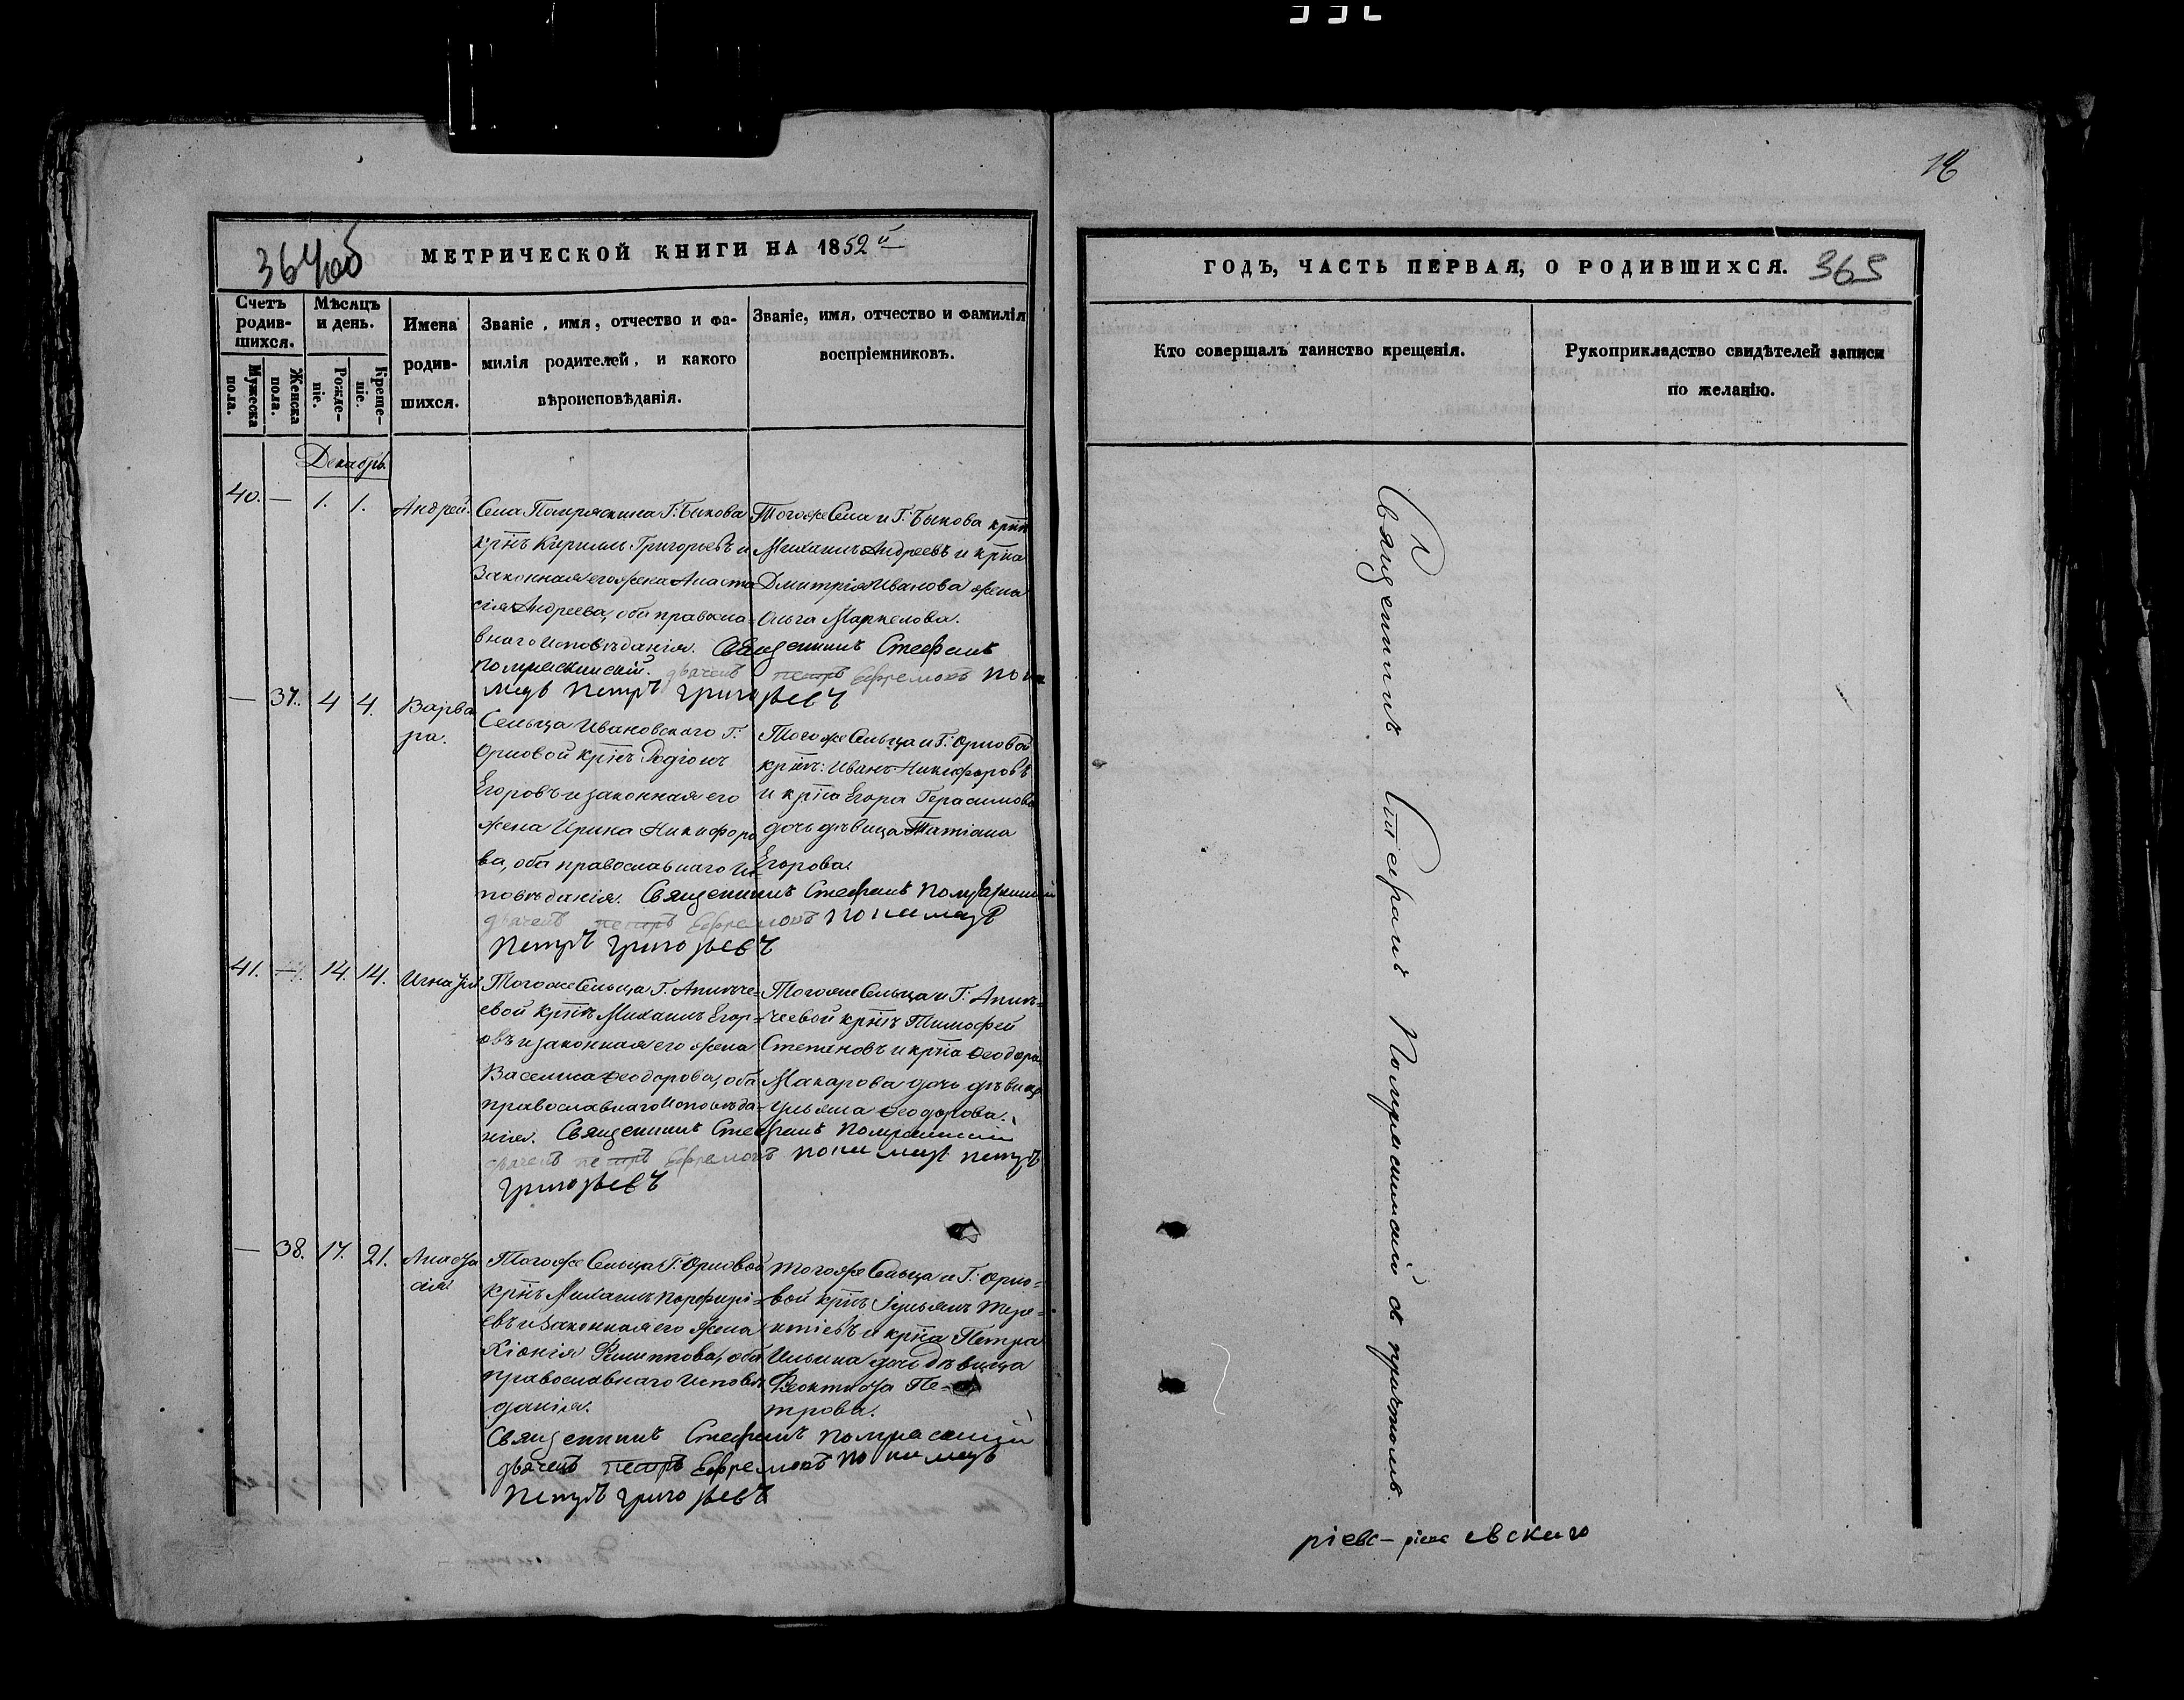 364об
МЕТРИЧЕСКОЙ КНИГИ НА 1852й
Счетъ родив-шихся.
Мужеска пола.
Женска пола.
Мѣсяцъ и день.
Рожде-ніе.
Креще-ніе.
Имена родив-шихся.
Званіе, имя, отчество и фа-
милія родителей, и какого
вѣроисповѣданія.
Званіе, имя, отчество и фамилія
воспріемниковъ.
Декабрь
40. — 1. 1. Андрей.
Села Помряскина Г: Быкова
крнъ Кириллъ Григорьевъ и
законная его жена Анаста
сія Андреева, оба правосла-
внаго исповѣданія. Священникъ Стефанъ
Помряскинскій. дьячекъ петръ Ефремовъ поно
марь Петръ Григорьевъ
Тогоже Села и Г: Быкова крнъ
Михаилъ Андреевъ и крна
Дмитрія Иванова жена
Ольга Маркелова.
— 37. 4 4. Варва
ра.
Сельца Ивановскаго Г:
Орловой крнъ Родіонъ
Егоровъ и законная его
жена Ирина Никифоро
ва, оба православнаго Ис
повѣданія. Священникъ Стефанъ
дьячекъ петръ Ефремовъ пономарь
Петръ Григорьевъ
Тогоже Сельца и Г: Орловой
крнъ: Иванъ Никифоровъ
и крна Егора Герасимова
дочь дѣвица Татіана
Егорова.
41. — 14. 14. Игнатій
Тогоже Сельца Г:
евой крнъ Михаилъ Егор-
овъ и законная его жена
Василиса Ѳеодорова, оба
православнаго Исповѣда-
нія. Священникъ Стефанъ
дьячекъ петръ Ефремовъ пономарь петръ
Григорьевъ
Тогоже Сельца и Г:
чеевой крнъ Тимофей
Степановъ и крна Ѳеодора
Макарова дочь дѣвица
Ульяна Ѳеодорова.
— 38. 17. 21. Анаста
сія
Тогоже Сельца Г: Орловой
крнъ Михаилъ Порфирі-
евъ и законная его жена
Хіонія Филиппова, оба
православнаго Исповѣ
данія.
Священникъ Стефанъ
дьячекъ петръ Ефремовъ пономарь
Петръ Григорьевъ
Тогоже Сельца и Г: Орло-
вой крнъ Іульянъ Тере-
нтіевъ и крна Петра
Ильина дочь дѣвица
Ѳеоктиста Пе-
трова.
16
ГОДЪ, ЧАСТЬ ПЕРВАЯ, О РОДИВШИХСЯ.
365
Кто совершалъ таинство крещенія.
Рукоприкладство свидѣтелей записи
по желанію.
Священникъ Стефанъ Помряскинскій съ причтомъ.
ріевс- евскаго